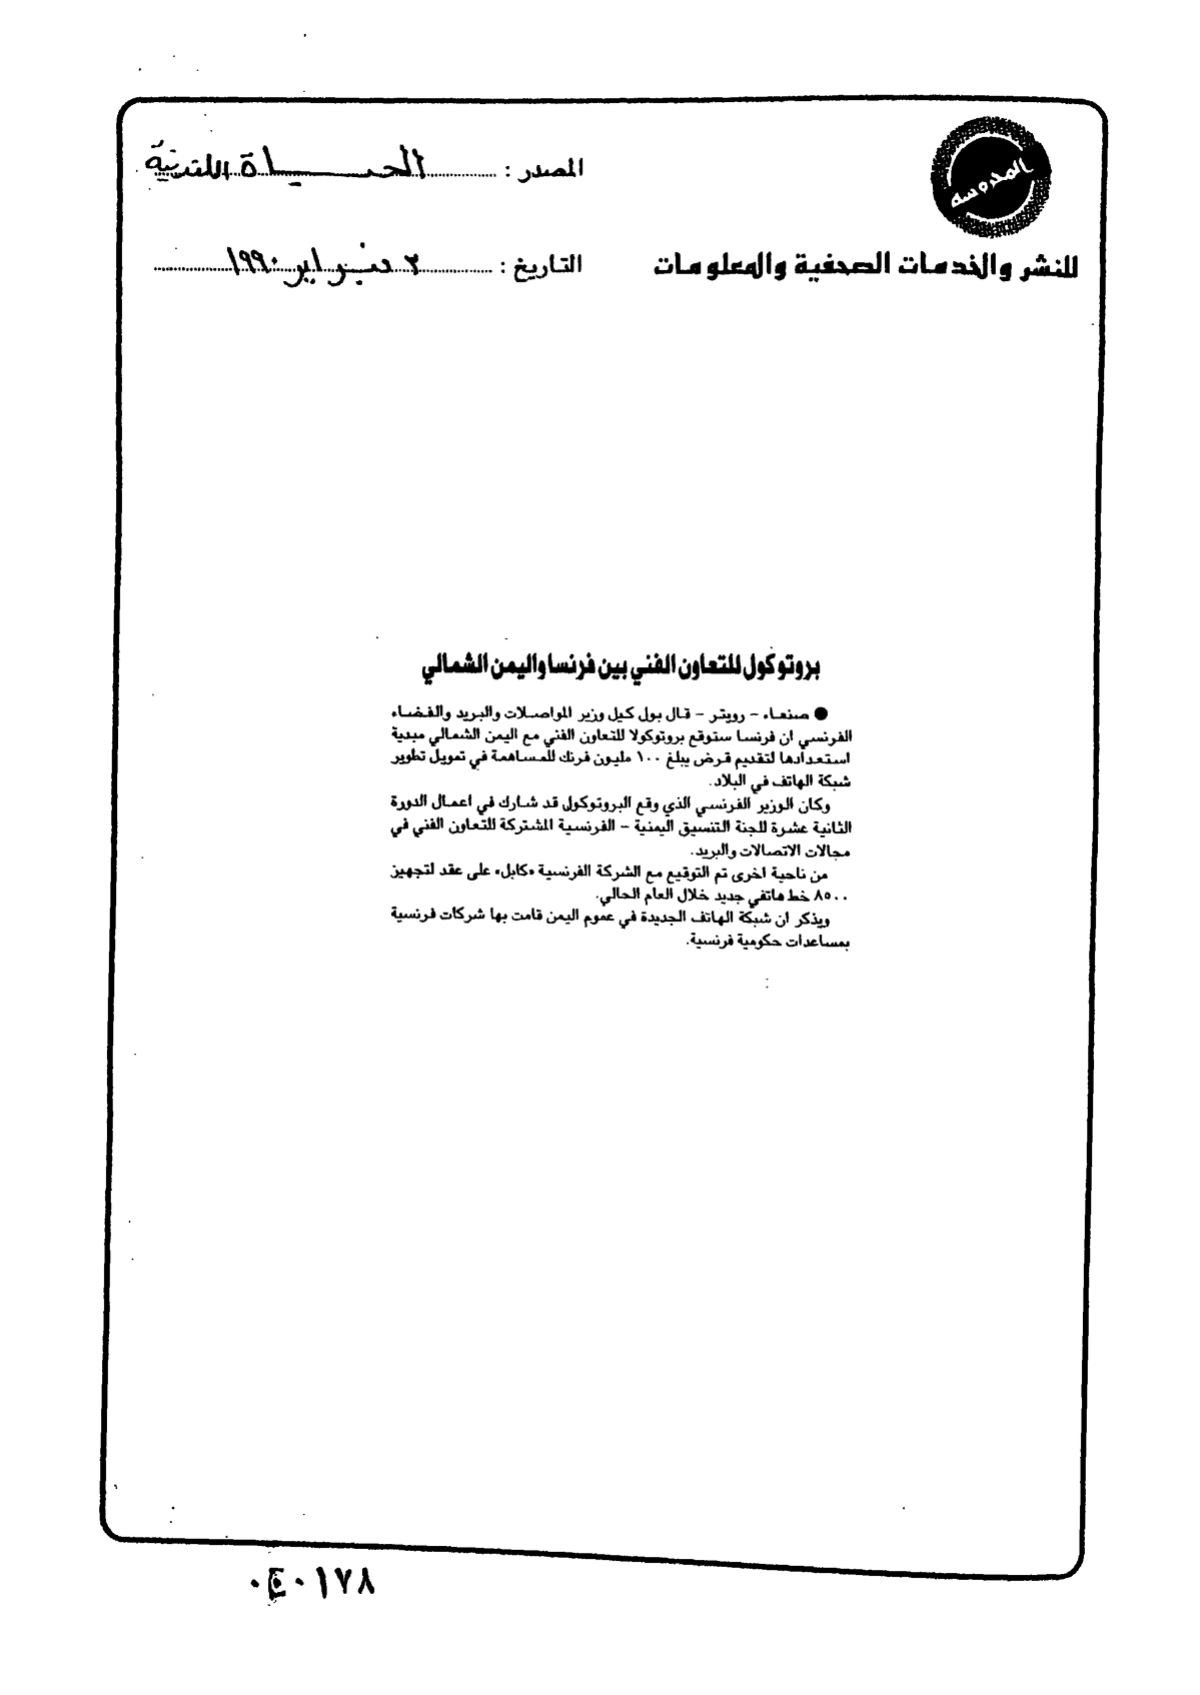 المحروسة
المصدر : الحياة اللندنية
للنشر والخدمات الصحفية والمعلومات
التاريخ : ٢ فبراير ١٩٩٠
بروتوكول للتعاون الفني بين فرنسا واليمن الشمالي
● صنعاء - رويتر - قال بول كيل وزير المواصلات والبريد والفضاء
الفرنسي ان فرنسا ستوقع بروتوكولا للتعاون الفني مع اليمن الشمالي مبدية
استعدادها لتقديم قرض يبلغ ١٠٠ مليون فرنك للمساهمة في تمويل تطوير
شبكة الهاتف في البلاد.
وكان الوزير الفرنسي الذي وقع البروتوكول قد شارك في اعمال الدورة
الثانية عشرة للجنة التنسيق اليمنية - الفرنسية المشتركة للتعاون الفني في
مجالات الاتصالات والبريد.
من ناحية اخرى تم التوقيع مع الشركة الفرنسية «كابل» على عقد لتجهيز
٨٥٠٠ خط هاتفي جديد خلال العام الحالي.
ويذكر ان شبكة الهاتف الجديدة في عموم اليمن قامت بها شركات فرنسية
بمساعدات حكومية فرنسية.
٠٤٠١٧٨